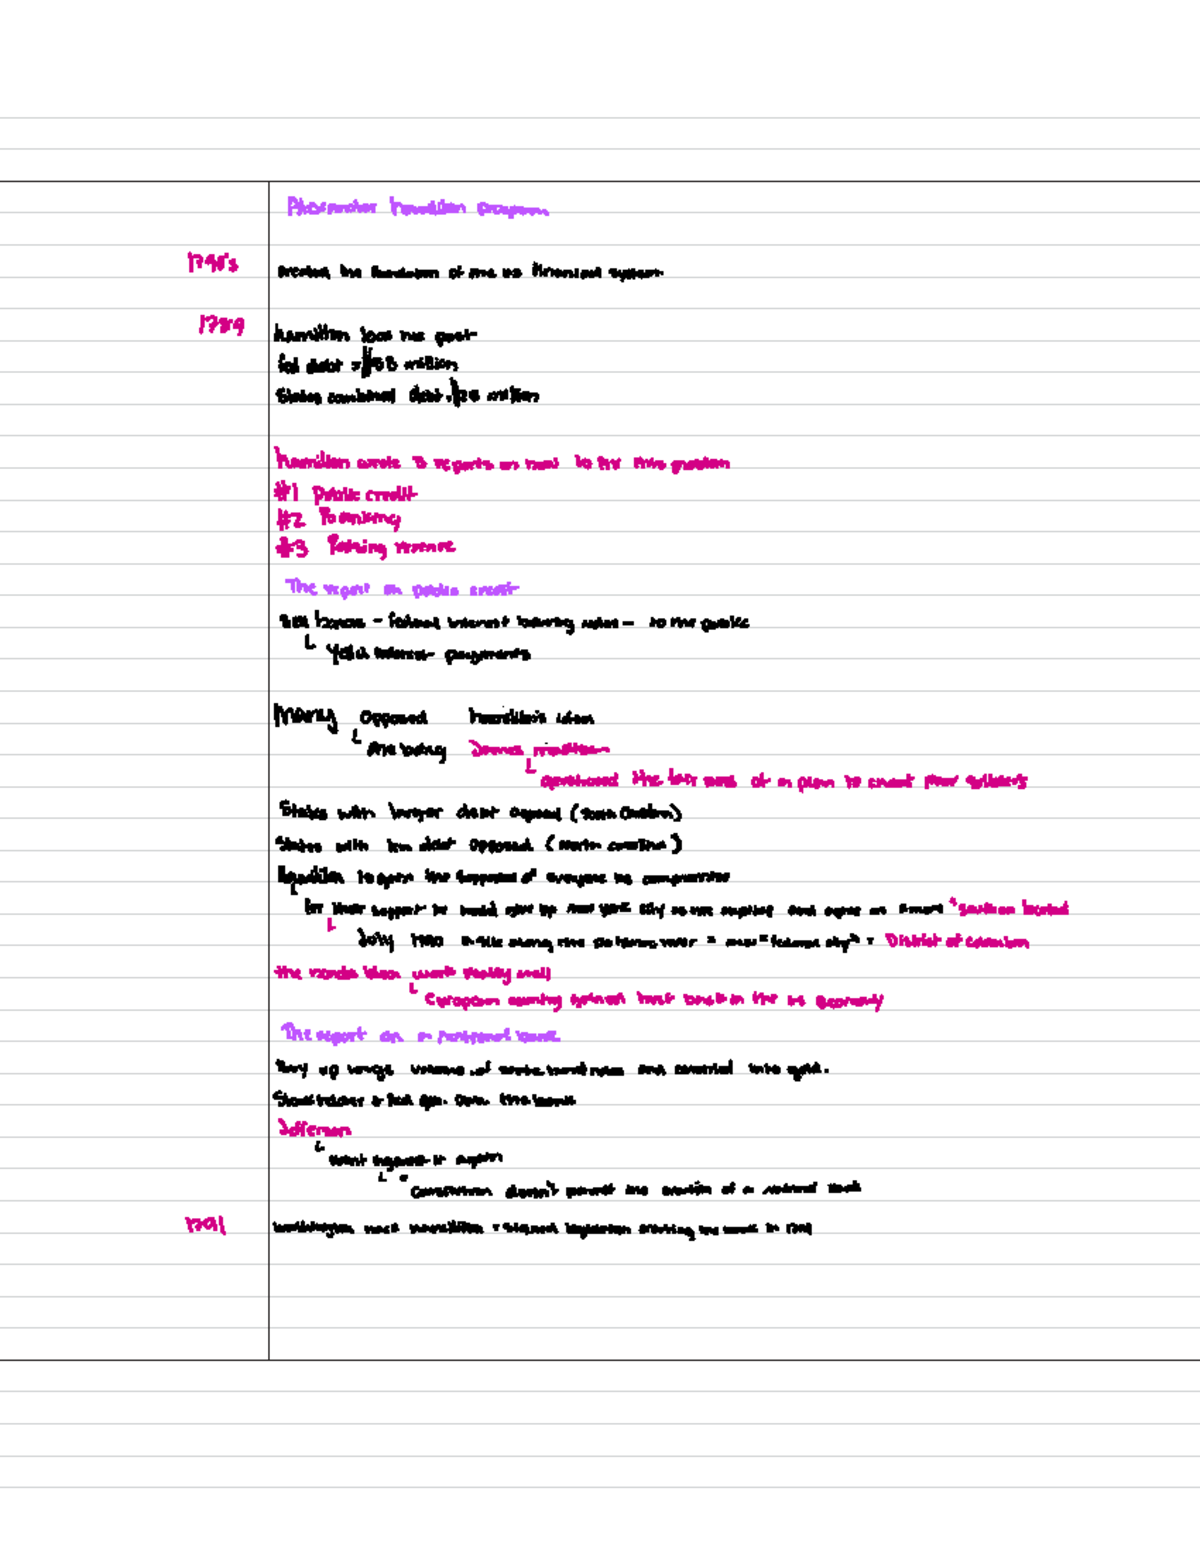 Alexander hamilton program
1790's
created the foundation of the us financial system
1789
hamilton took the post
fed debt = $
States combined debt = $25 million
hamilton wrote 3 reports on how to fix this problem
#1 public credit
#2 Banking
#3 Raising revenue
The report on public credit
Sell bonds - federal interest bearing notes - to the public
Yield interest payments
Many opposed hamilton's idea
One being James madison
questioned the of a plan to
States with larger debt (South Carolina)
States with less debt opposed (north carolina)
hamilton to gain the support of everyone he compromised
for their support he would give up new york city as the capital and agree on a more "southern located
July 1790 along the potomac river = new "federal city" = District of Columbia
the bonds work really well
European country trust back in the us economy
The report on a national bank
Buy up large volume of and converted into gold.
Stockholder & fed gov. own the bank
Jefferson
went against it again
"Constitution doesn't permit the creation of a national bank
1791
washington hamilton + signed legislation creating the bank in 1791